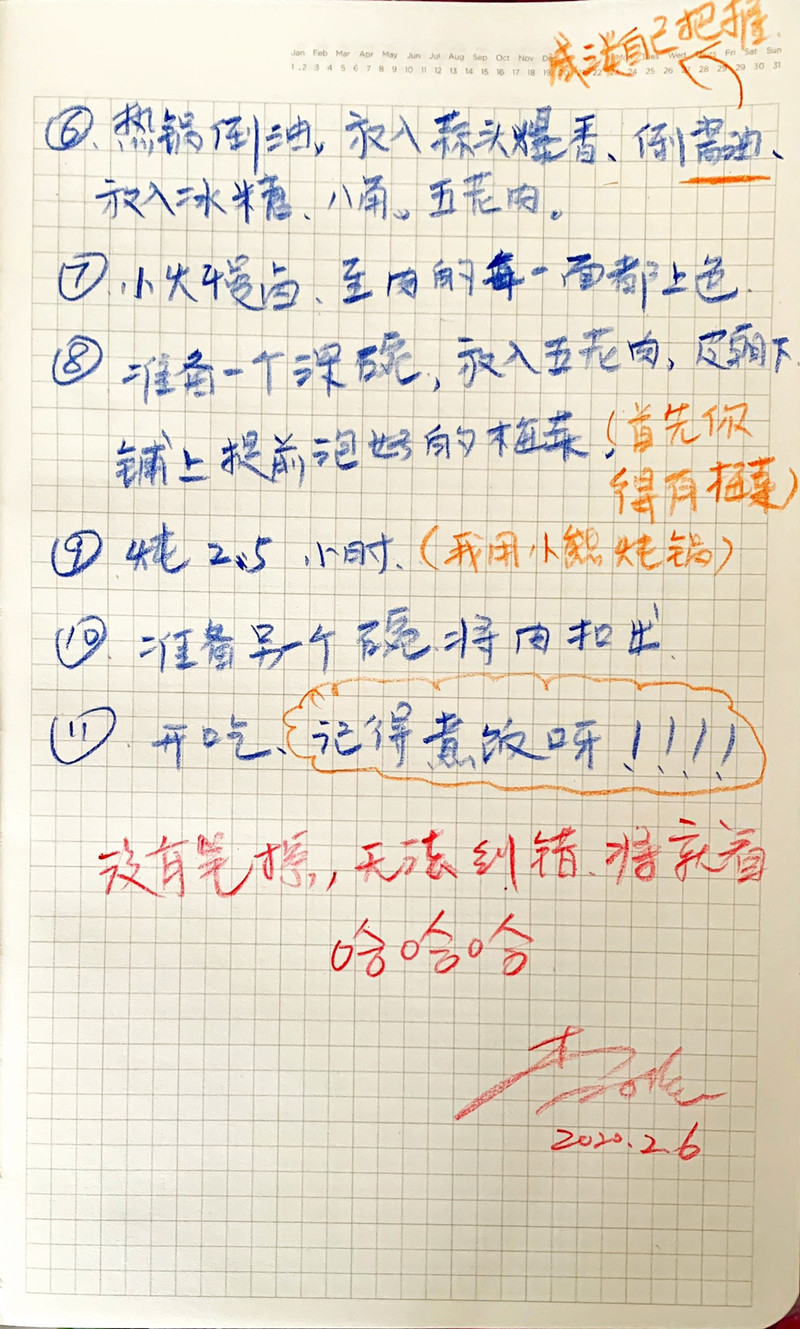 咸淡自己把握.
Jan Feb Mar Apr May Jun Jul Aug Sep Oct Nov Wed Thurs Fri Sat Sun
1 2 3 4 5 6 7 8 9 10 11 12 13 14 15 16 17 18 24 25 26 27 28 29 30 31
⑥. 热锅倒油。放入蒜头爆香、倒酱油、
放入冰糖、八角。五花肉。
⑦. 小火慢卤、至肉的每一面都上色.
⑧ 准备一个深碗,放入五花肉,皮朝下.
铺上提前泡好的梅菜,(首先你
得有梅菜)
⑨ 炖2.5小时.(我用小熊炖锅)
⑩. 准备另一个碗.将肉扣出.
⑪. 开吃、记得煮饭呀!!!!
没有笔擦,无法纠错.将就看
哈哈哈
2020.2.6